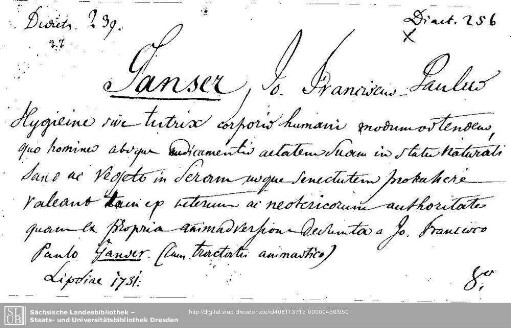 Diaet. 256
Ganser, Jo. Franciscus Paulus
Hygieine sive tutrix corporis humani modum ostendens,
quo homines absque medicamentis aetatem suam in statu naturali
sano ac vegeto in seram usque senectutem protrahere
valeant tam ex veterum ac neotericorum authoritate
quam ex propria animadversione desumta a Jo. Francisco
Paulo Ganser. (Cum tractatu animastico)
Lipsiae 1731.
8o
SLUB
Sächsische Landesbibliothek –
Staats- und Universitätsbibliothek Dresden